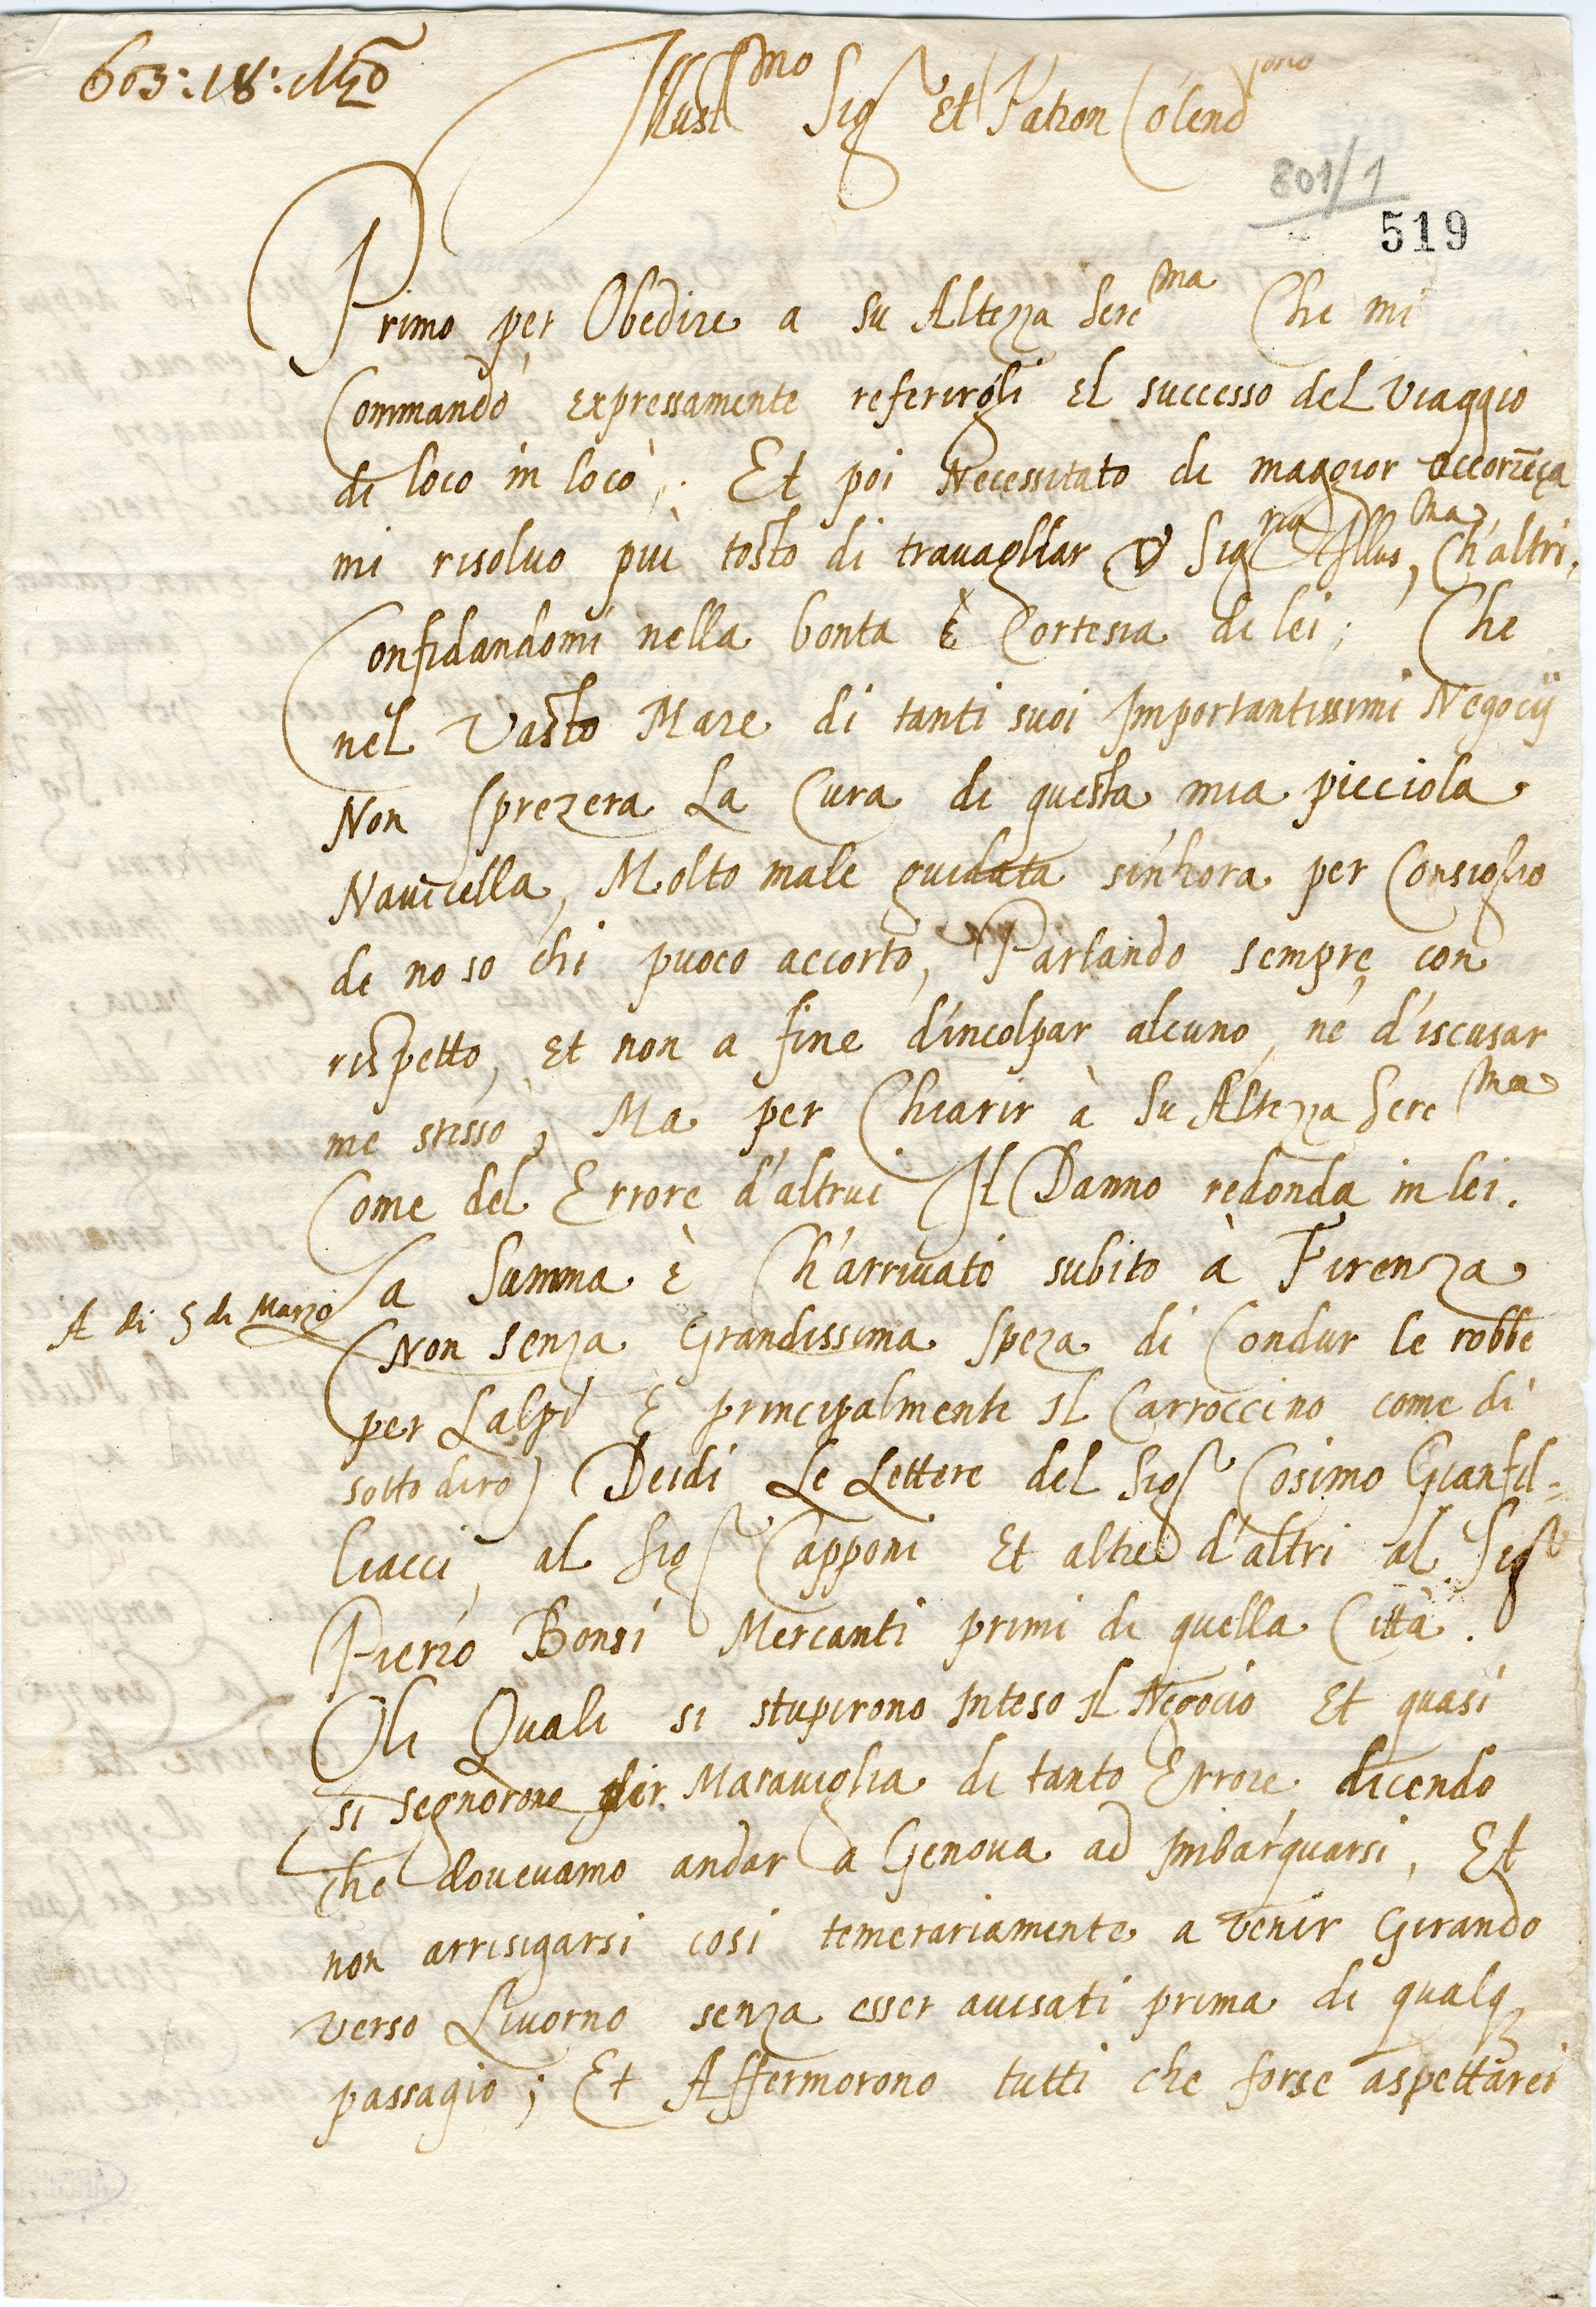 603: 18: Mzo
Illust mo Sigr Et Patron Colend
801/1
519
Primo per Obedire a su Altezza Sere ma Che mi
Commandò expressamente referirgli El successo del Viaggio
di loco in loco; Et poi Necessitato di maggior occorrēza
mi risoluo più tosto di trauagliar V Sig ria Illus ma, Ch'altri.
Confidandomi nella bonta è Cortesia di lei; Che
nel Vasto Mare di tanti suoi Importantissimi Negocij
Non sprezera La Cura di questa mia picciola
Nauicella, Molto male guidata sin'hora per Consiglio
de no so chi puoco accorto, Parlando sempre con
rispetto, Et non a fine d'incolpar alcuno, ne d'iscusar
me stesso, Ma per Chiarir à Su Altezza Sere ma
Come del Errore d'altrui Il Danno redonda in lei.
La Summa è Ch'arriuato subito à Firenza
A di 5 di Marzo
(Non senza Grandissima Speza di Condur le robbe
per Lalpi E principalmente Il Carroccino come di
sotto dirò) Deidi Le Lettere del Sigr Cosimo Gianfil=
liacci, al Sigr Capponi Et altre d'altri al Sigr
Pierio Bonsi Mercanti primi di quella Città.
Oli Quali si stupirono Inteso Il Negocio Et quasi
si segnorono per Marauiglia di tanto Errore dicendo
che doueuamo andar a Genoua ad Imbarquarsi, Et
non arrisigarsi cosi temerariamente a Venir Girando
verso Liuorno senza esser auisati prima di qualq
passagio; Et Affermorono tutti che forse aspettarei